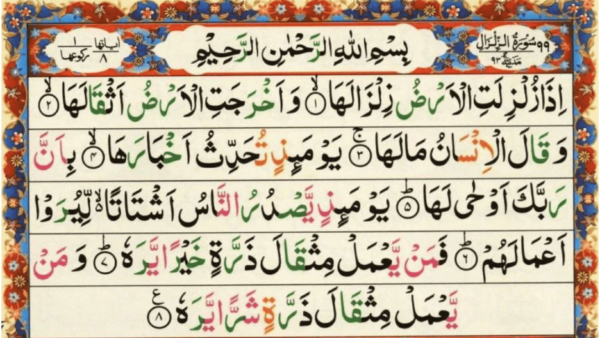 ۹۹ سُوْرَةُ الزِّلْزَالِ
بِسْمِ اللهِ الرَّحْمٰنِ الرَّحِيْمِ
اٰیَاتُهَا ۸ رُكُوْعُهَا ۱
اِذَا زُلْزِلَتِ الْاَرْضُ زِلْزَالَهَا ۙ﴿۱﴾ وَ اَخْرَجَتِ الْاَرْضُ اَثْقَالَهَا ۙ﴿۲﴾
وَ قَالَ الْاِنْسَانُ مَا لَهَا ۚ﴿۳﴾ يَوْمَئِذٍ تُحَدِّثُ اَخْبَارَهَا ۙ﴿۴﴾ بِاَنَّ
رَبَّكَ اَوْحٰى لَهَا ؕ﴿۵﴾ يَوْمَئِذٍ يَّصْدُرُ النَّاسُ اَشْتَاتًا ۙ۬ لِّيُرَوْا
اَعْمَالَهُمْ ؕ﴿۶﴾ فَمَنْ يَّعْمَلْ مِثْقَالَ ذَرَّةٍ خَيْرًا يَّرَهٗ ؕ﴿۷﴾ وَ مَنْ
يَّعْمَلْ مِثْقَالَ ذَرَّةٍ شَرًّا يَّرَهٗ ﴿۸﴾ ع